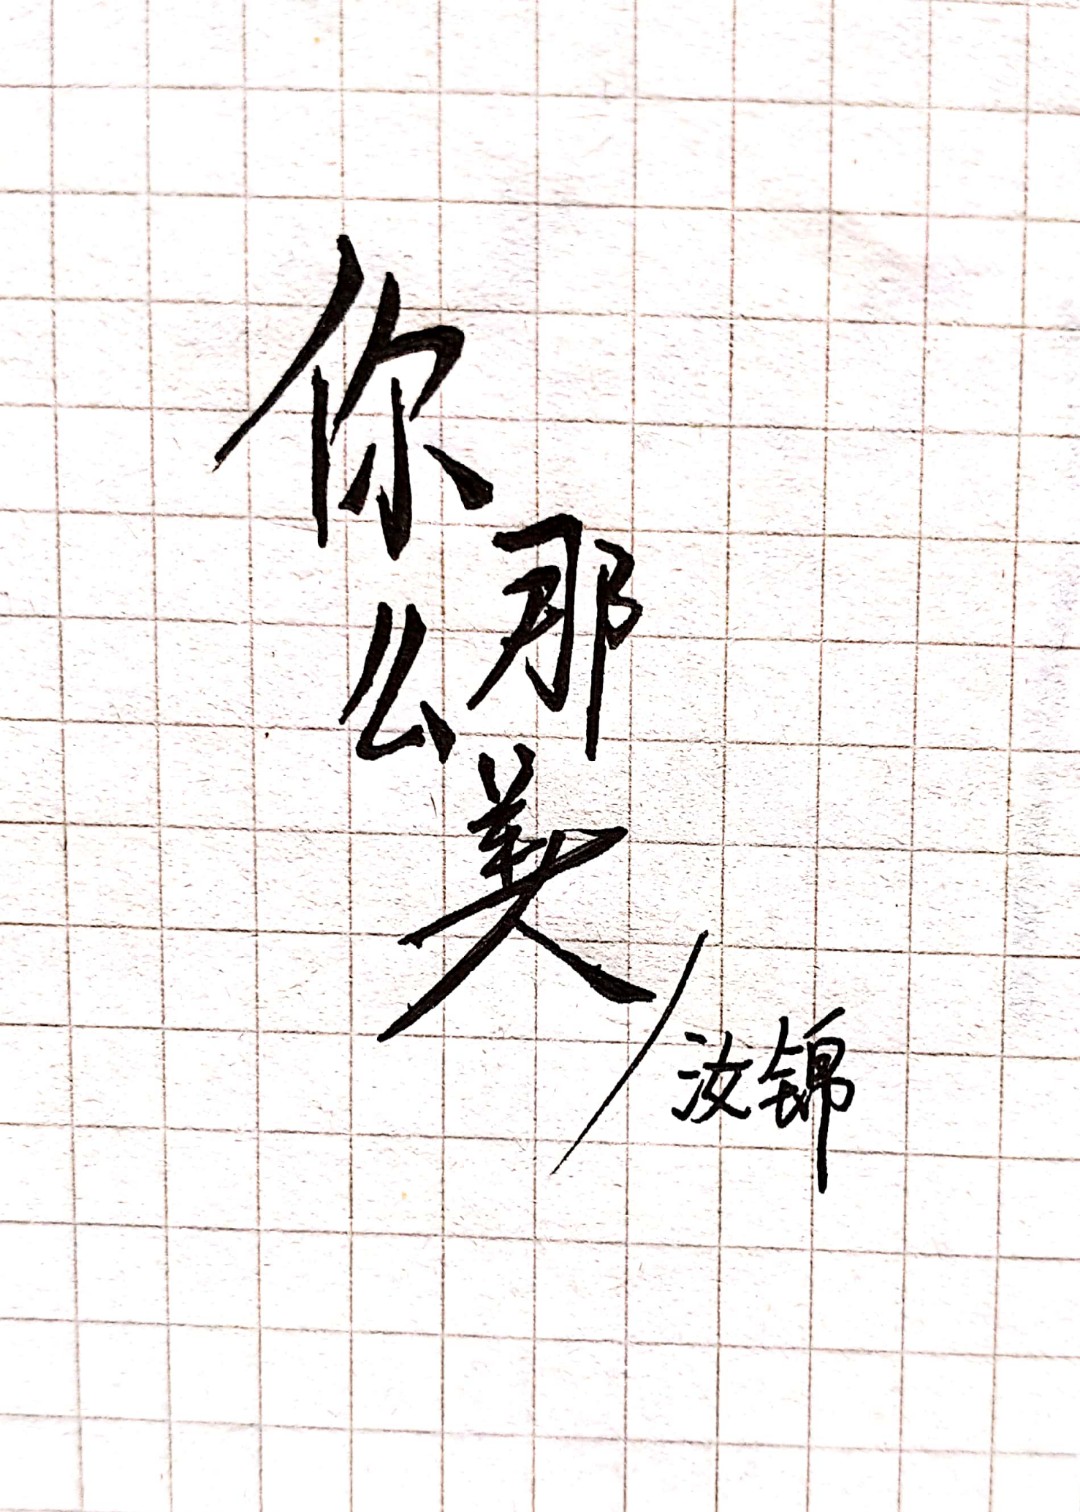 你那么美
汝锦